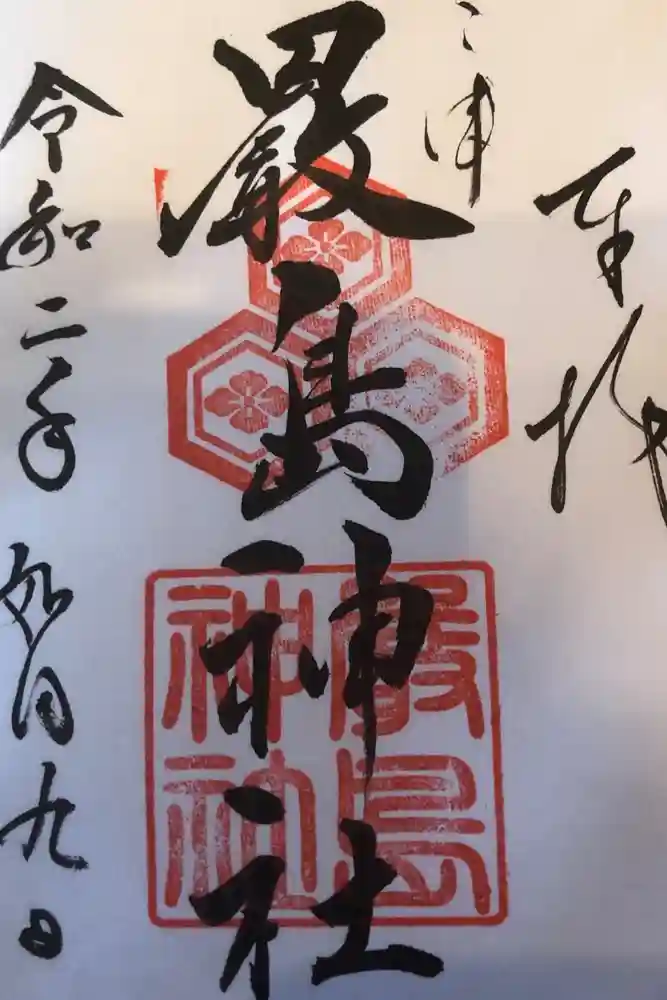 奉拝
三津
嚴島神社
嚴島
神社
令和二年九月九日